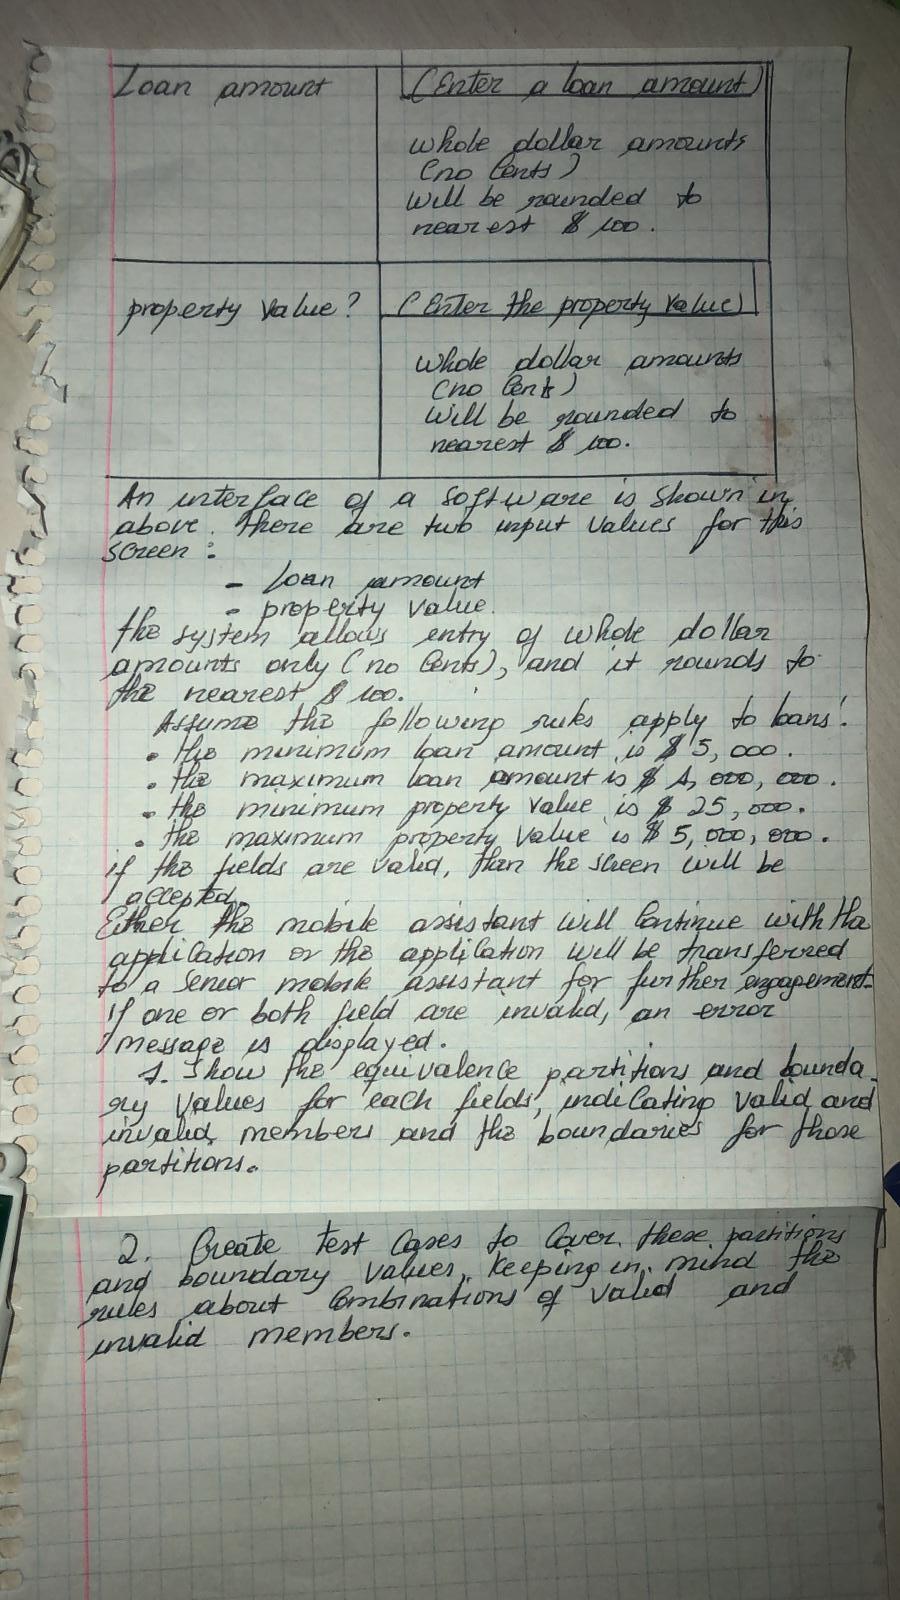 Loan amount
(Enter a loan amount)
whole dollar amounts
(no Cents)
Will be rounded to
nearest $ 100.
property value?
(Enter the property value)
Whole dollar amounts
(no Cents)
Will be rounded to
nearest $ 100.
An interface of a software is shown in
above. There are two input values for this
screen :
- Loan amount
- property value.
the system allows entry of whole dollar
amounts only (no Cents), and it rounds to
the nearest $ 100.
Assume the following rules apply to loans:
• the minimum loan amount is $ 5,000.
• the maximum loan amount is $ 1,000,000.
• the minimum property value is $ 25,000.
• the maximum property value is $ 5,000,000.
if the fields are valid, then the screen will be
accepted.
Either the mobile assistant will Continue with the
application or the application will be transferred
to a Senior mobile assistant for further engagement.
if one or both field are invalid, an error
message is displayed.
1. Show the equivalence partitions and bounda-
ry values for each fields, indicating valid and
invalid members and the boundaries for those
partitions.
2. Create test Cases to Cover these partitions
and boundary values, keeping in mind the
rules about Combinations of valid and
invalid members.